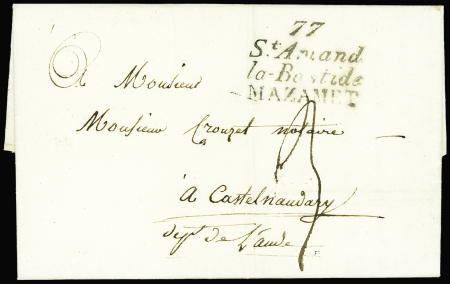 77
St Amand
la-Bastide
MAZAMET
A Monsieur
Monsieur Crouzet notaire
3
à Castelnaudary
dept de L'aude